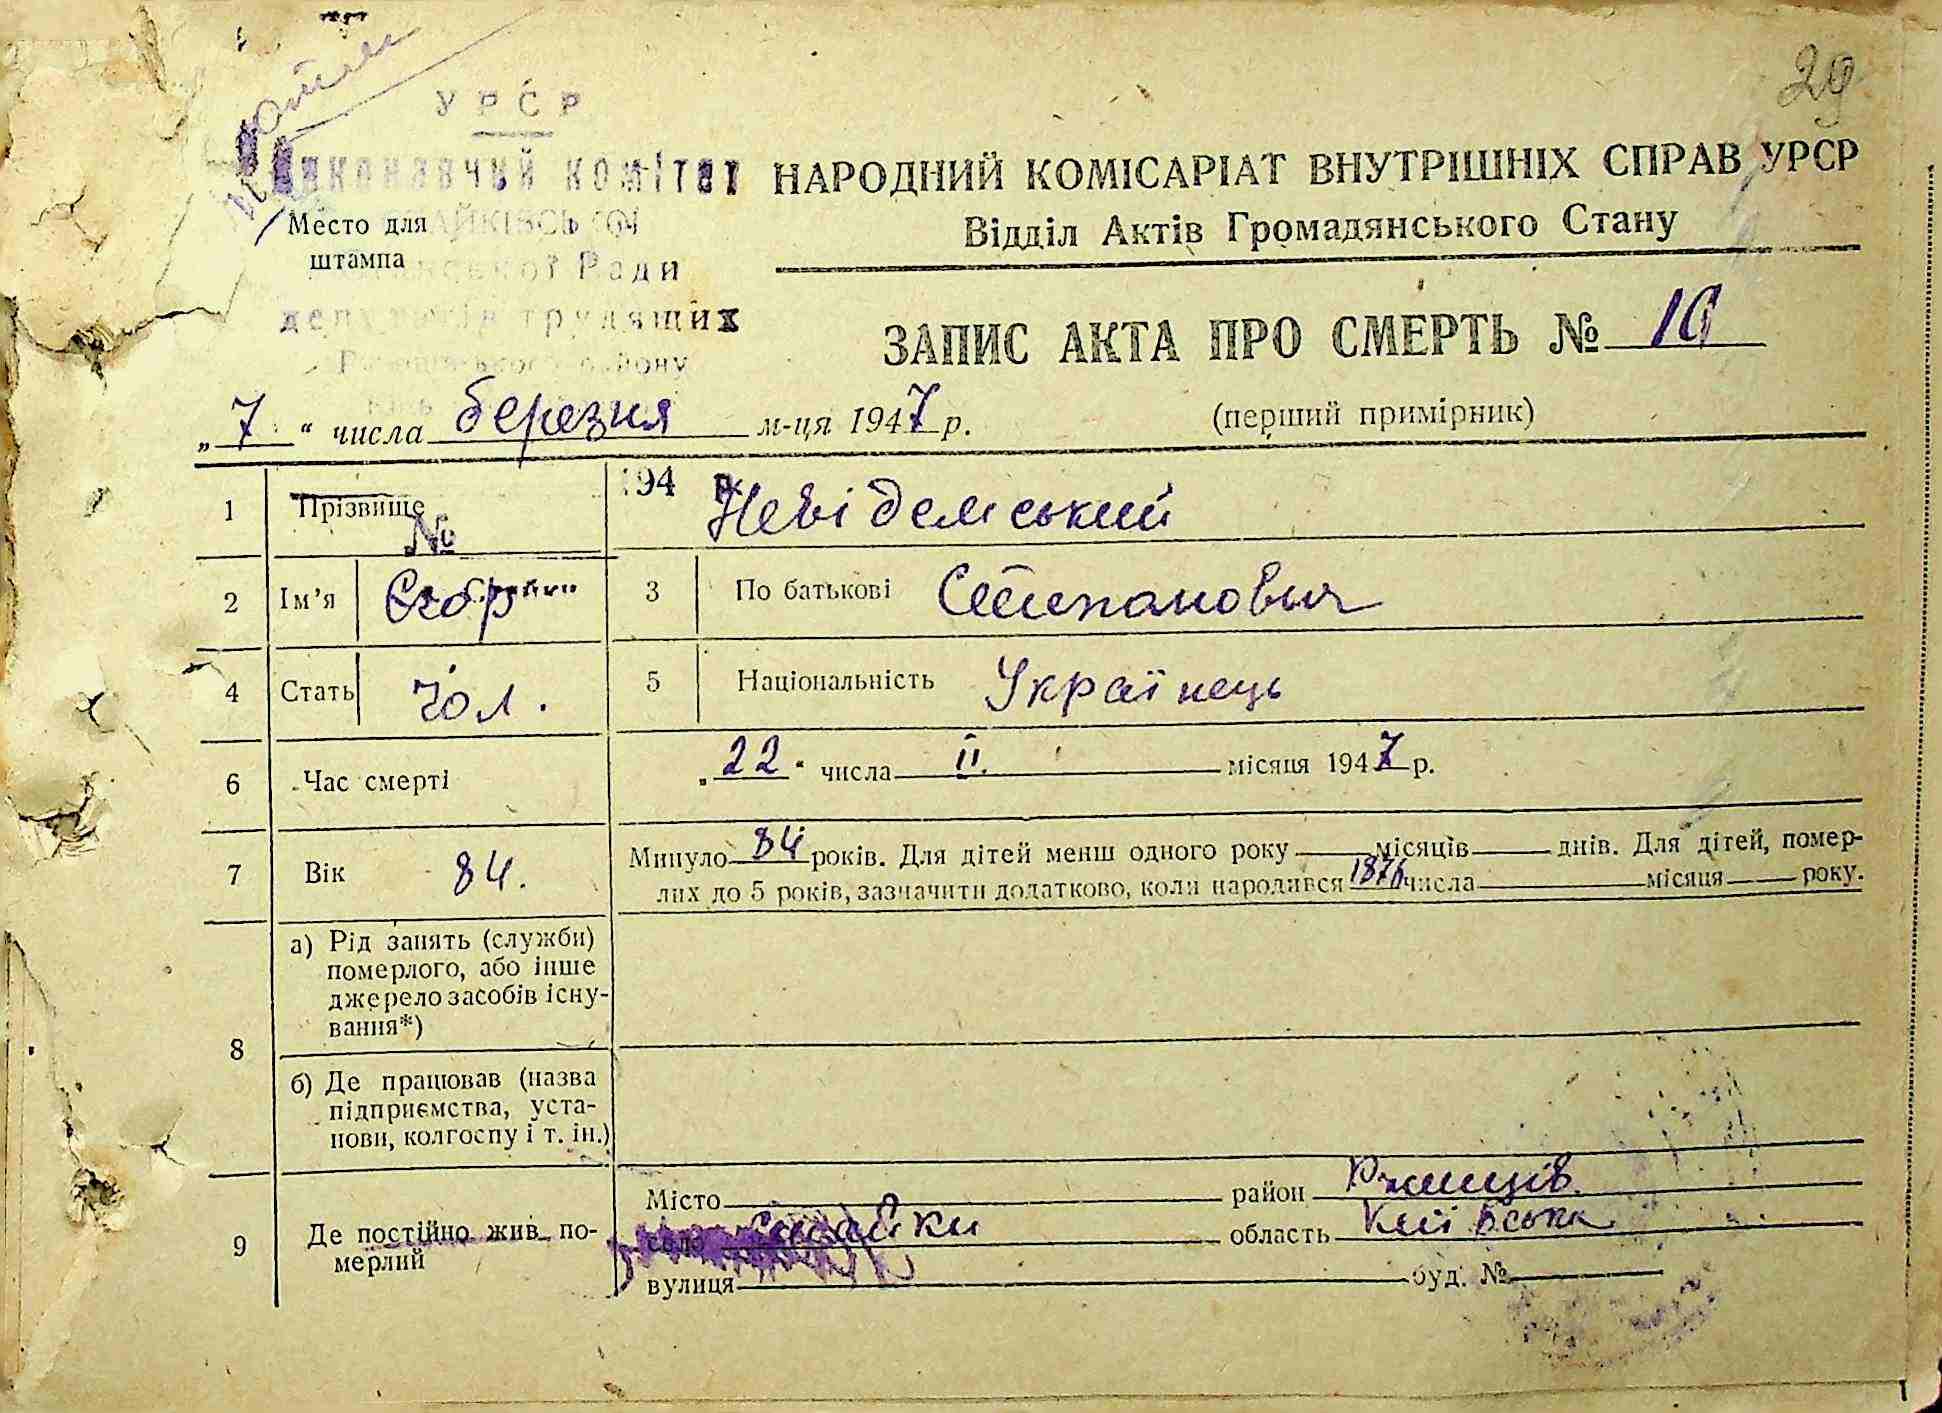 29
УРСР
Виконавчий комітет
НАРОДНИЙ КОМІСАРІАТ ВНУТРІШНІХ СПРАВ УРСР
Відділ Актів Громадянського Стану
Место для
штампа
Ради
депутатів трудящих
району
ЗАПИС АКТА ПРО СМЕРТЬ № 10
„7“ числа березня м-ця 1947 р.
(перший примірник)
194 р.
1 Прізвище Невідемський
№
2 Ім’я Єгор 3 По батькові Степанович
4 Стать Чол. 5 Національність Українець
6 Час смерті „22“ числа II місяця 1947 р.
7 Вік 84. Минуло 84 років. Для дітей менш одного року місяців днів. Для дітей, помер-
лих до 5 років, зазначити додатково, коли народився 1876 числа місяця року.
8 а) Рід занять (служби)
померлого, або інше
джерело засобів існу-
вання*)
б) Де працював (назва
підприємства, уста-
нови, колгоспу і т. ін.)
9 Де постійно жив по-
мерлий
Місто район Ржищів
село Стайки область Київськ
вулиця буд. №